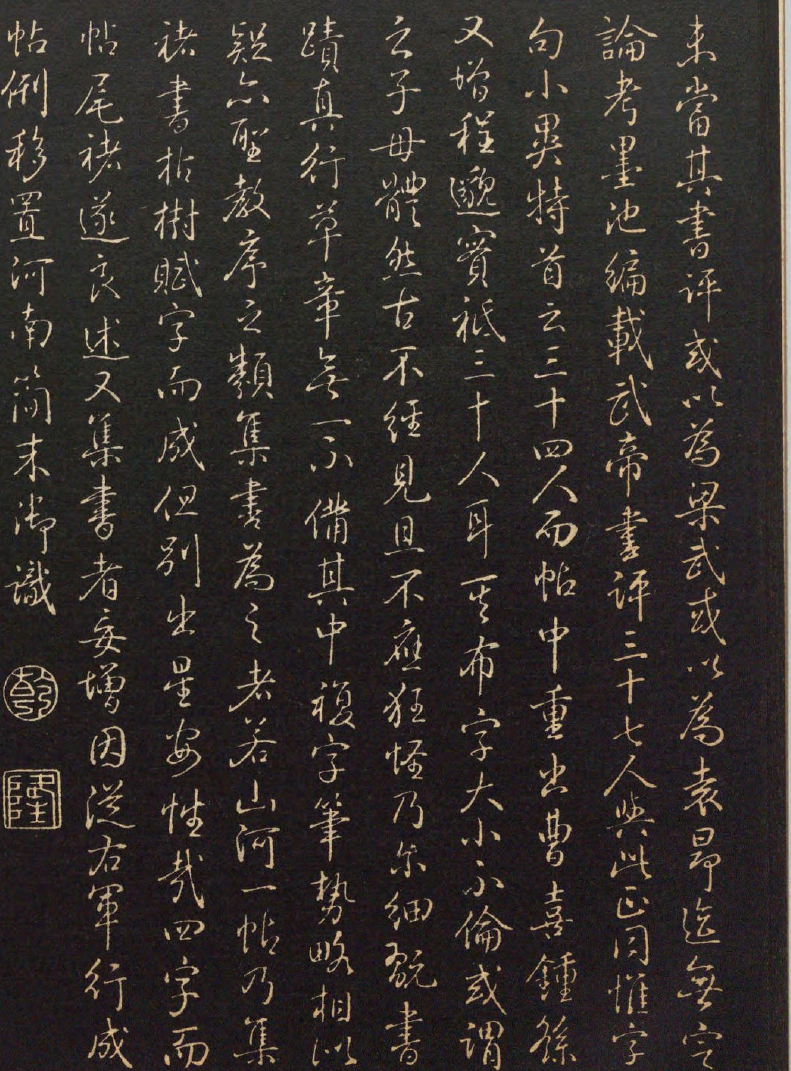 未當其書評或以為梁武或以為袁昂迄無定
論考墨池編載武帝書評三十七人與此正同惟字
句小異特首云三十四人而帖中重出曹喜鍾繇
又增程邈實祇三十人耳至布字大小不倫或謂
之子母體然古不經見且不應狂怪乃爾細翫書
蹟真行草章無一不備其中複字筆勢略相似
疑亦聖教序之類集書為之者若山河一帖乃集
褚書枯樹賦字而成但別出星安性哉四字而
帖尾褚遂良述又集書者妄增因從右軍行成
帖例移置河南簡末御識
乾
隆